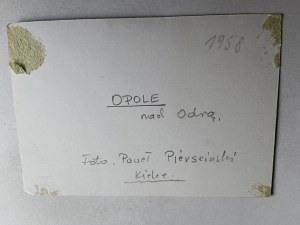 1958
OPOLE
nad Odrą,
Foto. Paweł Pierściński
Kielce.